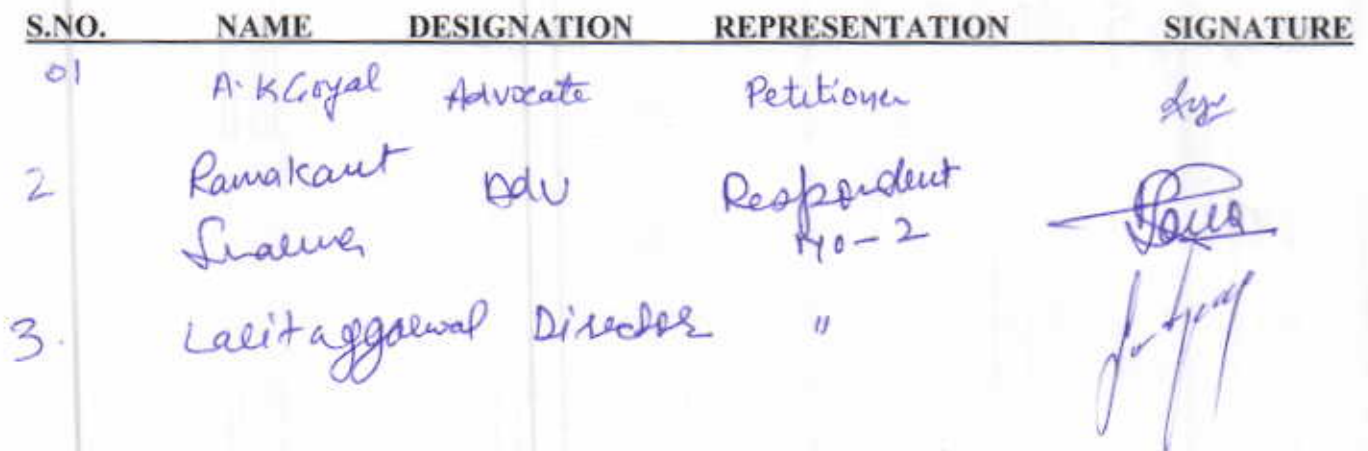 S.NO. NAME DESIGNATION REPRESENTATION SIGNATURE
01 A.K Goyal Advocate Petitioner
2 Ramakant Adv Respondent
Sharma No-2
3. Lalit aggarwal Director "